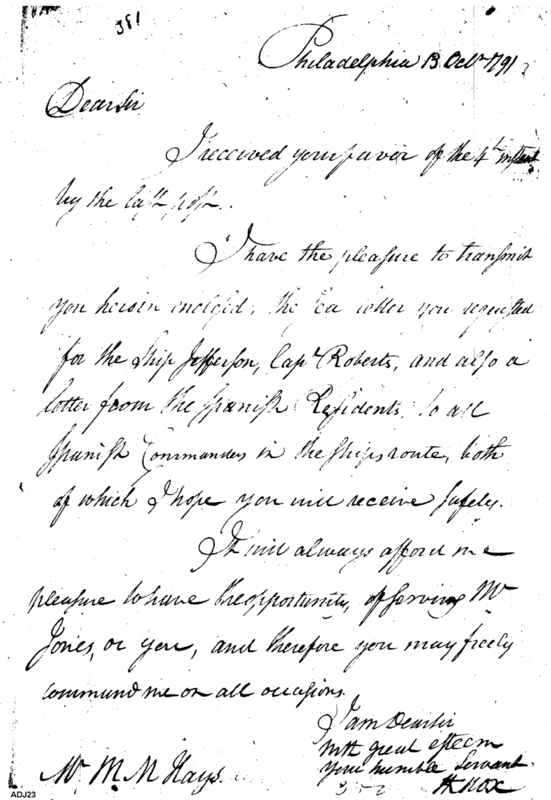 381
Philadelphia 13 Octr 1791
Dear Sir
I received your favor of the 4th instant
by the last post.
I have the pleasure to transmit
you herein enclosed, the Sea letter you requested
for the Ship Jefferson, Capt Roberts, and also a
letter from the Spanish Residents, to all
Spanish Commanders in the Ships route, both
of which I hope you will receive safely.
It will always afford me
pleasure to have the opportunity, of serving Mr
Jones, or you, and therefore you may freely
command me on all occasions.
I am Dear Sir
with great esteem
your humble Servant
HKnox
Mr M M Hays.
ADJ23